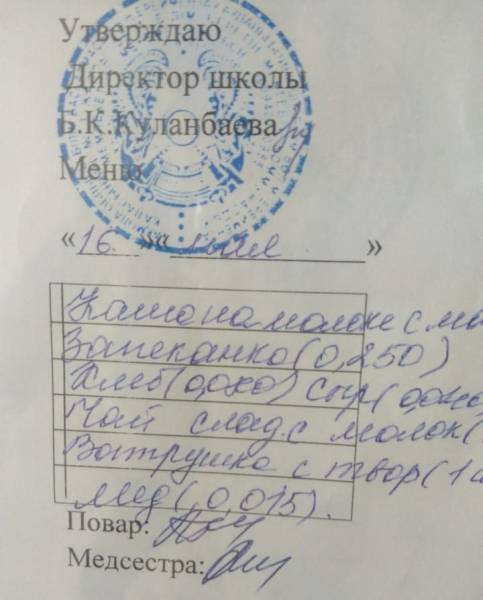 Утверждаю
Директор школы
Б.К.Куланбаева
Меню
«16» «мая»
Каша на молоке с ма
Запеканка (0,250)
Хлеб (0,0 сыр (0,0
Чай слад. с молок (
Ватрушка с твор (1
Мёд (0,015).
Повар:
Медсестра: